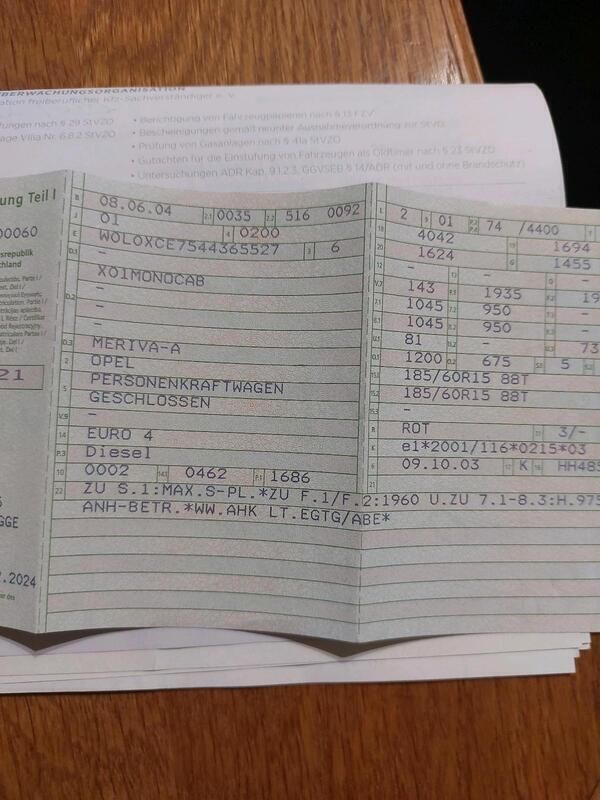 BERWACHUNGSORGANISATION
ation freiberuflicher Kfz-Sachverständiger e. V.
ungen nach § 29 StVZO
age VIIIa Nr. 6.8.2 StVZO
• Berichtigung von Fahrzeugpapieren nach § 13 FZV
• Bescheinigungen gemäß neunter Ausnahmeverordnung zur StVO
• Prüfung von Gasanlagen nach § 41a StVZO
• Gutachten für die Einstufung von Fahrzeugen als Oldtimer nach § 23 StVZO
• Untersuchungen ADR Kap. 9.1.2.3, GGVSEB § 14/ADR (mit und ohne Brandschutz)
ung Teil I
00060
srepublik
chland
21
GGE
.2024
B 08.06.04 2.1 0035 2.2 516 0092
J 01 4 0200
E W0L0XCE7544365527 3 6
D.1 –
X01MONOCAB
D.2 –
–
–
D.3 MERIVA-A
2 OPEL
5 PERSONENKRAFTWAGEN
GESCHLOSSEN
V.9 –
14 EURO 4
P.3 Diesel
10 0002 14.1 0462 P.1 1686
22 ZU S.1:MAX.S-PL.*ZU F.1/F.2:1960 U.ZU 7.1-8.3:H.975
ANH-BETR.*WW.AHK LT.EGTG/ABE*
L 2 9 01 P.2 P.4 74 /4400 T
18 4042 19 1694
20 1624 G 1455
12 – 13 – Q –
V.7 143 F.1 1935 F.2 19
7.1 1045 7.2 950
8.1 1045 8.2 950
U.1 81 – U.3 73
O.1 1200 O.2 675 S.1 5 S.2
15.1 185/60R15 88T
15.2 185/60R15 88T
15.3 –
R ROT 11 3/–
K e1*2001/116*0215*03
6 09.10.03 17 K 16 HH485
21